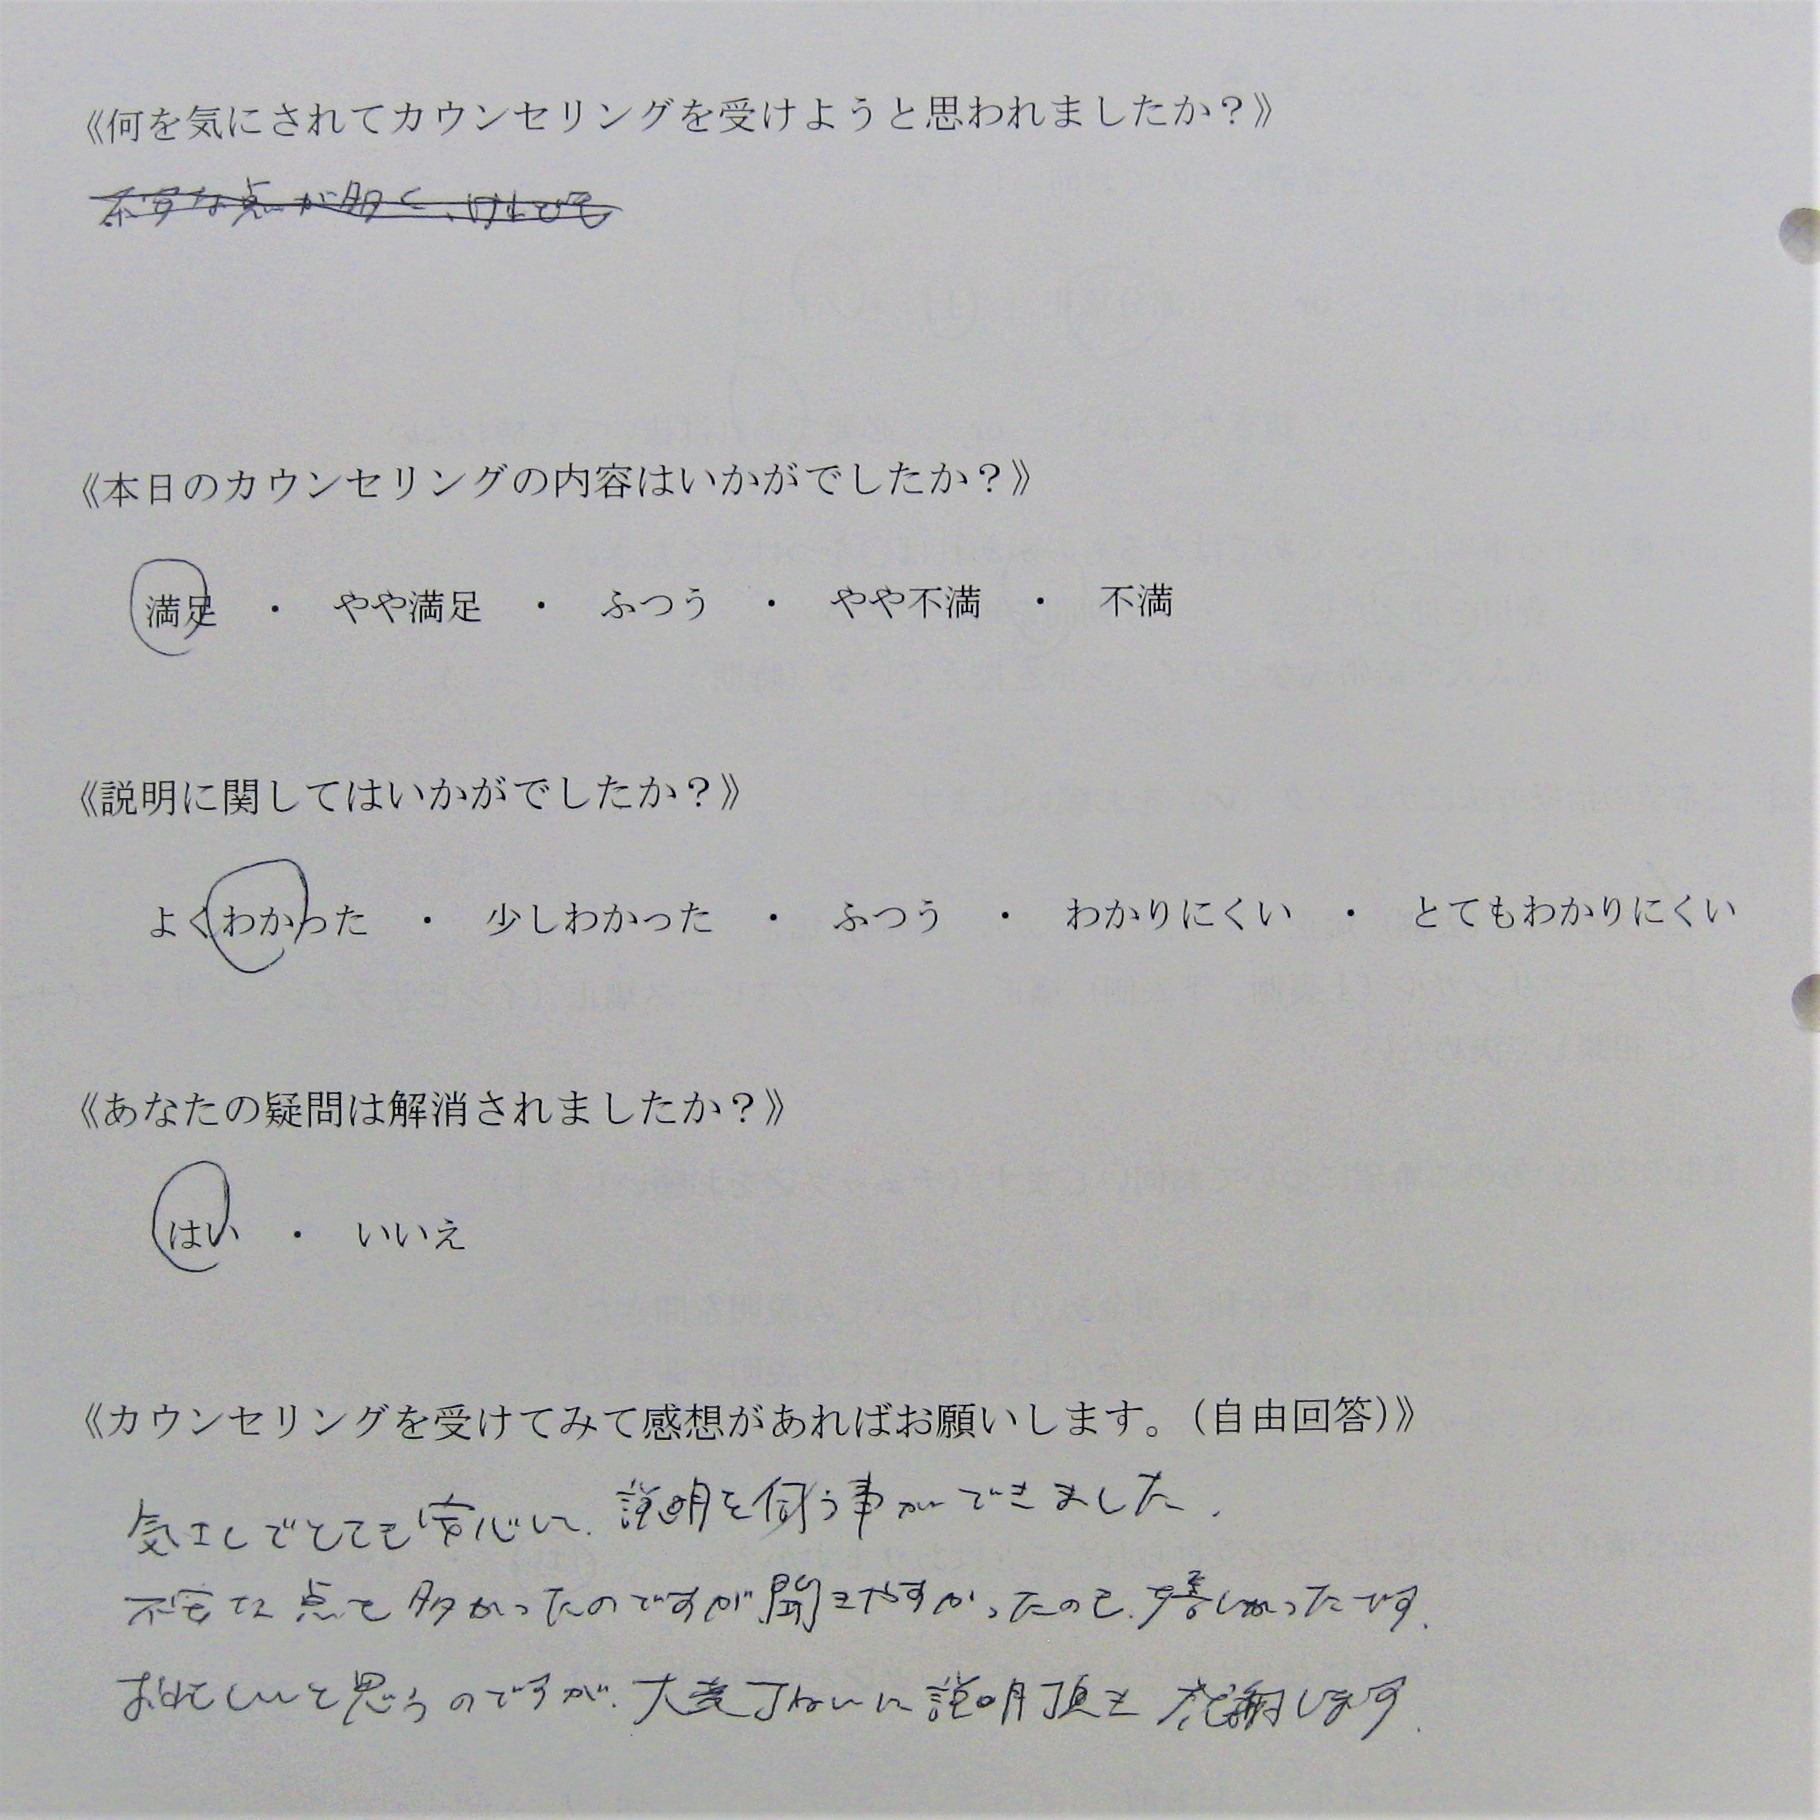 《何を気にされてカウンセリングを受けようと思われましたか？》
不安な点が多く、けれども
《本日のカウンセリングの内容はいかがでしたか？》
満足 ・ やや満足 ・ ふつう ・ やや不満 ・ 不満
《説明に関してはいかがでしたか？》
よくわかった ・ 少しわかった ・ ふつう ・ わかりにくい ・ とてもわかりにくい
《あなたの疑問は解消されましたか？》
はい ・ いいえ
《カウンセリングを受けてみて感想があればお願いします。（自由回答）》
でとても安心して、説明を伺う事ができました。
不安な点も多かったのですが聞きやすかったのも、嬉しかったです。
お忙しいと思うのですが、大変丁ねいに説明頂き感謝します。